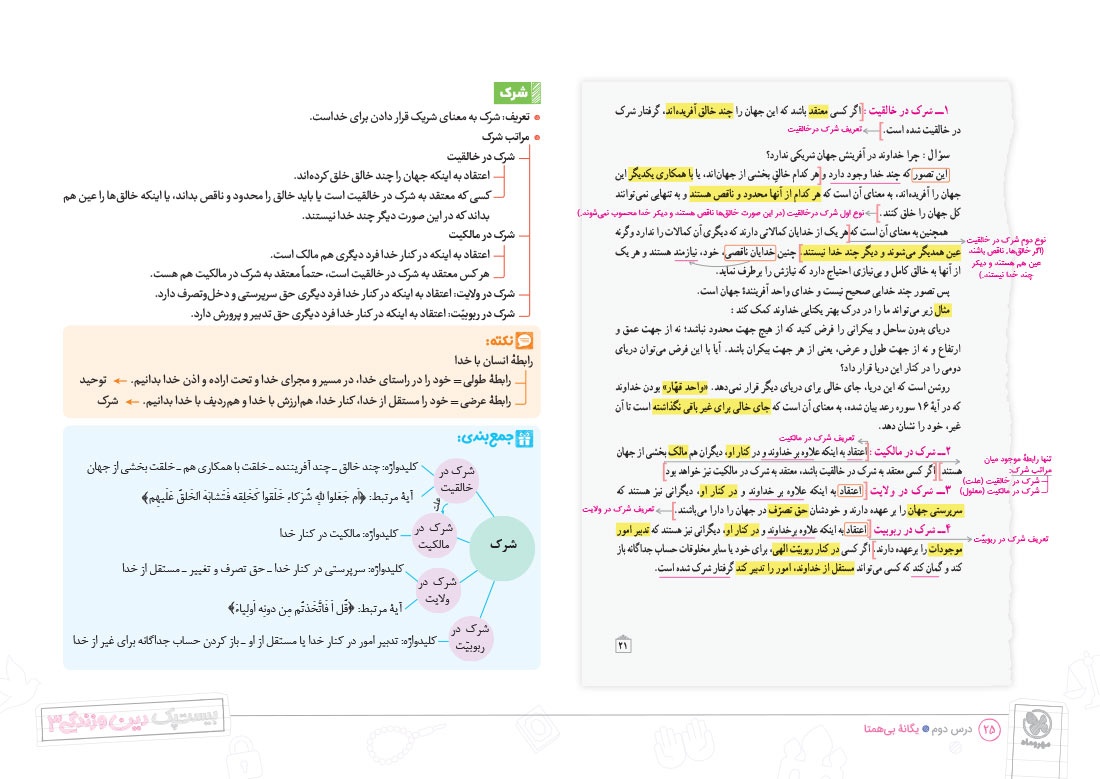 ۱ــ شرک در خالقیت : اگر کسی معتقد باشد که این جهان را چند خالق آفریده‌اند، گرفتار شرک
در خالقیت شده است.
تعریف شرک در خالقیت
سؤال : چرا خداوند در آفرینش جهان شریکی ندارد؟
این تصور که چند خدا وجود دارد و هر کدام خالق بخشی از جهان‌اند، یا با همکاری یکدیگر این
جهان را آفریده‌اند، به معنای آن است که هر کدام از آنها محدود و ناقص هستند و به تنهایی نمی‌توانند
کل جهان را خلق کنند.
نوع اول شرک در خالقیت (در این صورت خالق‌ها ناقص هستند و دیگر خدا محسوب نمی‌شوند.)
همچنین به معنای آن است که هر یک از خدایان کمالاتی دارند که دیگری آن کمالات را ندارد وگرنه
عین همدیگر می‌شوند و دیگر چند خدا نیستند. چنین خدایان ناقصی، خود، نیازمند هستند و هر یک
از آنها به خالق کامل و بی‌نیازی احتیاج دارد که نیازش را برطرف نماید.
نوع دوم شرک در خالقیت
(اگر خالق‌ها، ناقص باشند
عین هم هستند و دیگر
چند خدا نیستند.)
پس تصور چند خدایی صحیح نیست و خدای واحد آفرینندهٔ جهان است.
مثال زیر می‌تواند ما را در درک بهتر یکتایی خداوند کمک کند :
دریای بدون ساحل و بیکرانی را فرض کنید که از هیچ جهت محدود نباشد؛ نه از جهت عمق و
ارتفاع و نه از جهت طول و عرض، یعنی از هر جهت بیکران باشد. آیا با این فرض می‌توان دریای
دومی را در کنار این دریا قرار داد؟
روشن است که این دریا، جای خالی برای دریای دیگر قرار نمی‌دهد. «واحد قهّار» بودن خداوند
که در آیهٔ ۱۶ سوره رعد بیان شده، به معنای آن است که جای خالی برای غیر باقی نگذاشته است تا آن
غیر، خود را نشان دهد.
تعریف شرک در مالکیت
۲ــ شرک در مالکیت : اعتقاد به اینکه علاوه بر خداوند و در کنار او، دیگران هم مالک بخشی از جهان
هستند. اگر کسی معتقد به شرک در خالقیت باشد، معتقد به شرک در مالکیت نیز خواهد بود
تنها رابطهٔ موجود میان
مراتب شرک:
شرک در خالقیت (علت)
شرک در مالکیت (معلول)
۳ــ شرک در ولایت : اعتقاد به اینکه علاوه بر خداوند و در کنار او، دیگرانی نیز هستند که
سرپرستی جهان را بر عهده دارند و خودشان حق تصرّف در جهان را دارا می‌باشند.
تعریف شرک در ولایت
۴ــ شرک در ربوبیت : اعتقاد به اینکه علاوه برخداوند و در کنار او، دیگرانی نیز هستند که تدبیر امور
موجودات را برعهده دارند. اگر کسی در کنار ربوبیّت الهی، برای خود یا سایر مخلوقات حساب جداگانه باز
کند و گمان کند که کسی می‌تواند مستقل از خداوند، امور را تدبیر کند گرفتار شرک شده است.
تعریف شرک در ربوبیّت
۲۱
شرک
تعریف: شرک به معنای شریک قرار دادن برای خداست.
مراتب شرک
شرک در خالقیت
اعتقاد به اینکه جهان را چند خالق خلق کرده‌اند.
کسی که معتقد به شرک در خالقیت است یا باید خالق را محدود و ناقص بداند، یا اینکه خالق‌ها را عین هم
بداند که در این صورت دیگر چند خدا نیستند.
شرک در مالکیت
اعتقاد به اینکه در کنار خدا فرد دیگری هم مالک است.
هر کس معتقد به شرک در خالقیت است، حتماً معتقد به شرک در مالکیت هم هست.
شرک در ولایت: اعتقاد به اینکه در کنار خدا فرد دیگری حق سرپرستی و دخل‌وتصرف دارد.
شرک در ربوبیّت: اعتقاد به اینکه در کنار خدا فرد دیگری حق تدبیر و پرورش دارد.
نکته:
رابطهٔ انسان با خدا
رابطهٔ طولی = خود را در راستای خدا، در مسیر و مجرای خدا و تحت اراده و اذن خدا بدانیم. توحید
رابطهٔ عرضی = خود را مستقل از خدا، کنار خدا، هم‌ارزش با خدا و هم‌ردیف با خدا بدانیم. شرک
جمع‌بندی:
شرک
شرک در
خالقیت
کلیدواژه: چند خالق ـ چند آفریننده ـ خلقت با همکاری هم ـ خلقت بخشی از جهان
آیهٔ مرتبط: ﴿اَم جَعَلوا لِلّٰهِ شُرَکاءَ خَلَقوا کَخَلقِه فَتَشابَهَ الخَلقُ عَلَیهِم﴾
علت
شرک در
مالکیت
کلیدواژه: مالکیت در کنار خدا
شرک در
ولایت
کلیدواژه: سرپرستی در کنار خدا ـ حق تصرف و تغییر ـ مستقل از خدا
آیهٔ مرتبط: ﴿قُل اَ فَاتَّخَذتُم مِن دونِه اَولِیاءَ﴾
شرک در
ربوبیّت
کلیدواژه: تدبیر امور در کنار خدا یا مستقل از او ـ باز کردن حساب جداگانه برای غیر از خدا
مهروماه
۲۵ درس دوم یگانهٔ بی‌همتا
بیست‌پک دین و زندگی ۳